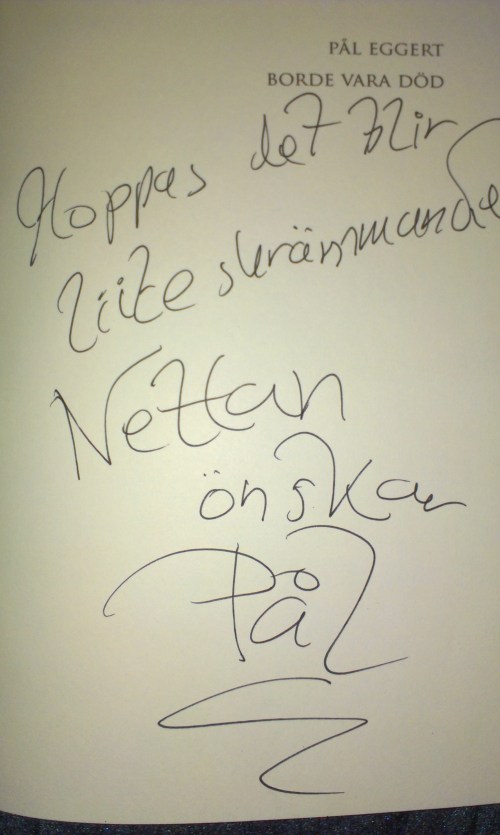 PÅL EGGERT
BORDE VARA DÖD
Hoppas det blir
liite skrämmande
Nettan
önskar
Pål